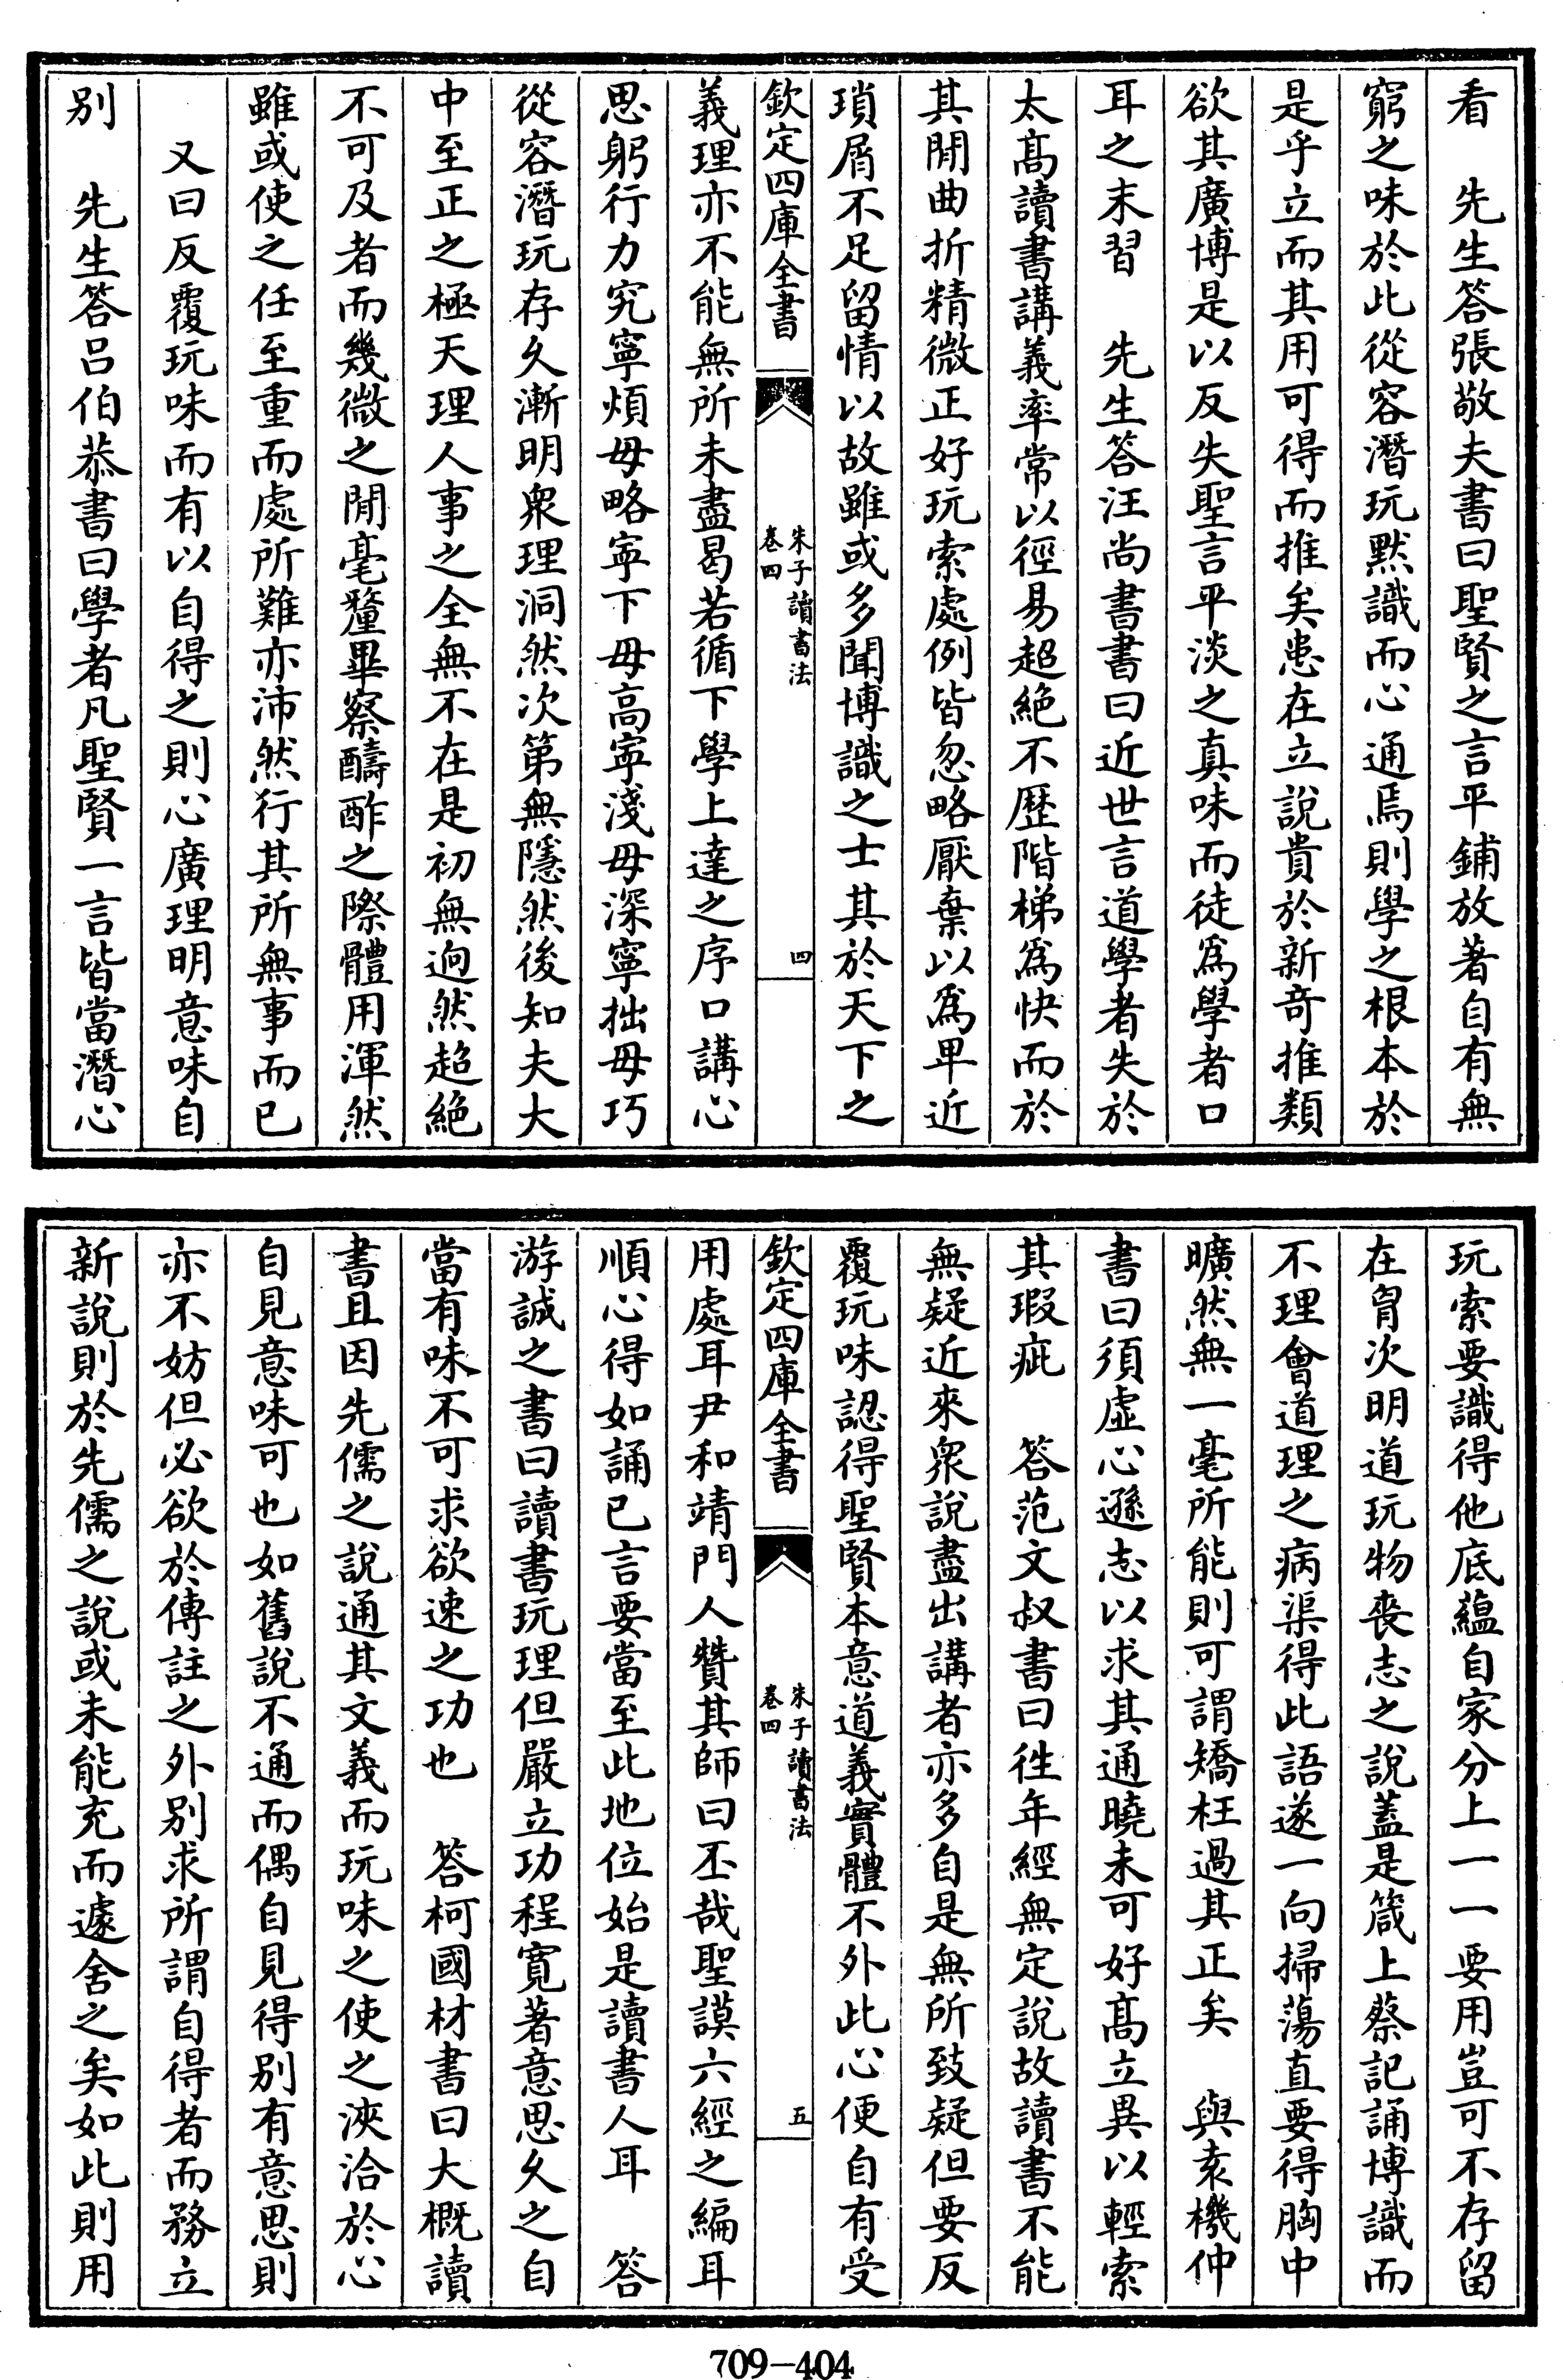 看　先生答張敬夫書曰聖賢之言平鋪放著自有無
窮之味於此從容潛玩默識而心通焉則學之根本於
是乎立而其用可得而推矣患在立說貴於新奇推類
欲其廣博是以反失聖言平淡之真味而徒爲學者口
耳之末習　先生答汪尚書書曰近世言道學者失於
太高讀書講義率常以徑易超絶不歷階梯爲快而於
其閒曲折精微正好玩索處例皆忽略厭棄以爲卑近
瑣屑不足留情以故雖或多聞博識之士其於天下之
欽定四庫全書　朱子讀書法　卷四　四
義理亦不能無所未盡曷若循下學上達之序口講心
思躬行力究寧煩毋略寧下毋高寧淺毋深寧拙毋巧
從容潛玩存久漸明衆理洞然次第無隱然後知夫大
中至正之極天理人事之全無不在是初無逈然超絶
不可及者而幾微之閒毫釐畢察醻酢之際體用渾然
雖或使之任至重而處所難亦沛然行其所無事而已
又曰反覆玩味而有以自得之則心廣理明意味自
别　先生答呂伯恭書曰學者凡聖賢一言皆當潛心
玩索要識得他底蘊自家分上一一要用豈可不存留
在胷次明道玩物丧志之說蓋是箴上蔡記誦博識而
不理會道理之病渠得此語遂一向掃蕩直要得胸中
曠然無一毫所能則可謂矯枉過其正矣　與袁機仲
書曰須虛心遜志以求其通曉未可好高立異以輕索
其瑕疵　答范文叔書曰徃年經無定說故讀書不能
無疑近來衆說盡出講者亦多自是無所致疑但要反
覆玩味認得聖賢本意道義實體不外此心便自有受
欽定四庫全書　朱子讀書法　卷四　五
用處耳尹和靖門人贊其師曰丕哉聖謨六經之編耳
順心得如誦已言要當至此地位始是讀書人耳　答
游誠之書曰讀書玩理但嚴立功程寛著意思久之自
當有味不可求欲速之功也　答柯國材書曰大概讀
書且因先儒之說通其文義而玩味之使之浹洽於心
自見意味可也如舊說不通而偶自見得别有意思則
亦不妨但必欲於傳註之外别求所謂自得者而務立
新說則於先儒之說或未能充而遽舍之矣如此則用
709—404